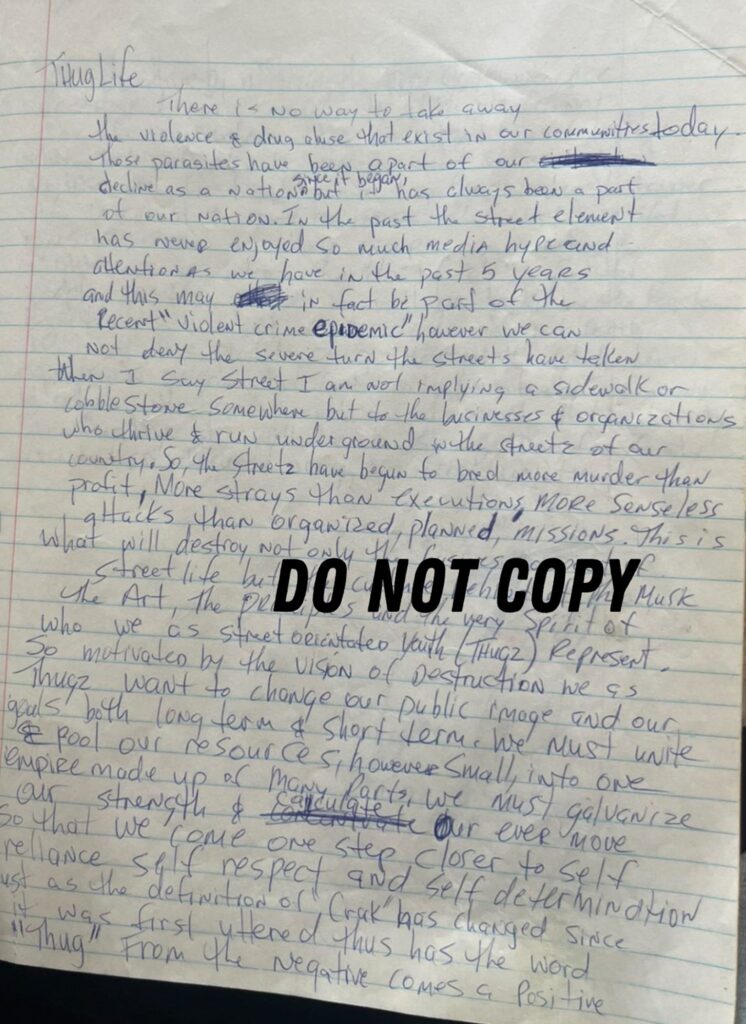 THug Life
There is no way to take away
the violence & drug abuse that exist in our communities today.
Those parasites have been apart of our
decline as a nation since it began, but it has always been a part
of our nation. In the past the street element
has never enjoyed so much media hype and
attention as we have in the past 5 years
and this may in fact be part of the
Recent "violent crime epidemic" however we can
not deny the severe turn the streets have taken
When I say street I am not implying a sidewalk or
cobble stone somewhere but to the businesses & organizations
who thrive & run underground w the streetz of our
country. So, the streetz have begun to bred more murder than
profit, More strays than executions, more senseless
attacks, than organized, planned, missions. This is
what will destroy not only the
Street life but the
DO NOT COPY
Musk
the Art, the and the very Spirit of
who we as street orientated youth (THugz) Represent.
So motivated by the vision of Destruction we as
Thugz want to change our public image and our
goals both long term & short term. We must unite
& pool our resources, however small, into one
empire made up of many parts, we must galvanize
our strength & calculate our ever move
So that we come one step closer to self
reliance self respect and self determindtion
ust as the definition of "Crak" has changed since
it was first uttered thus has the word
"Thug" From the negative comes a positive